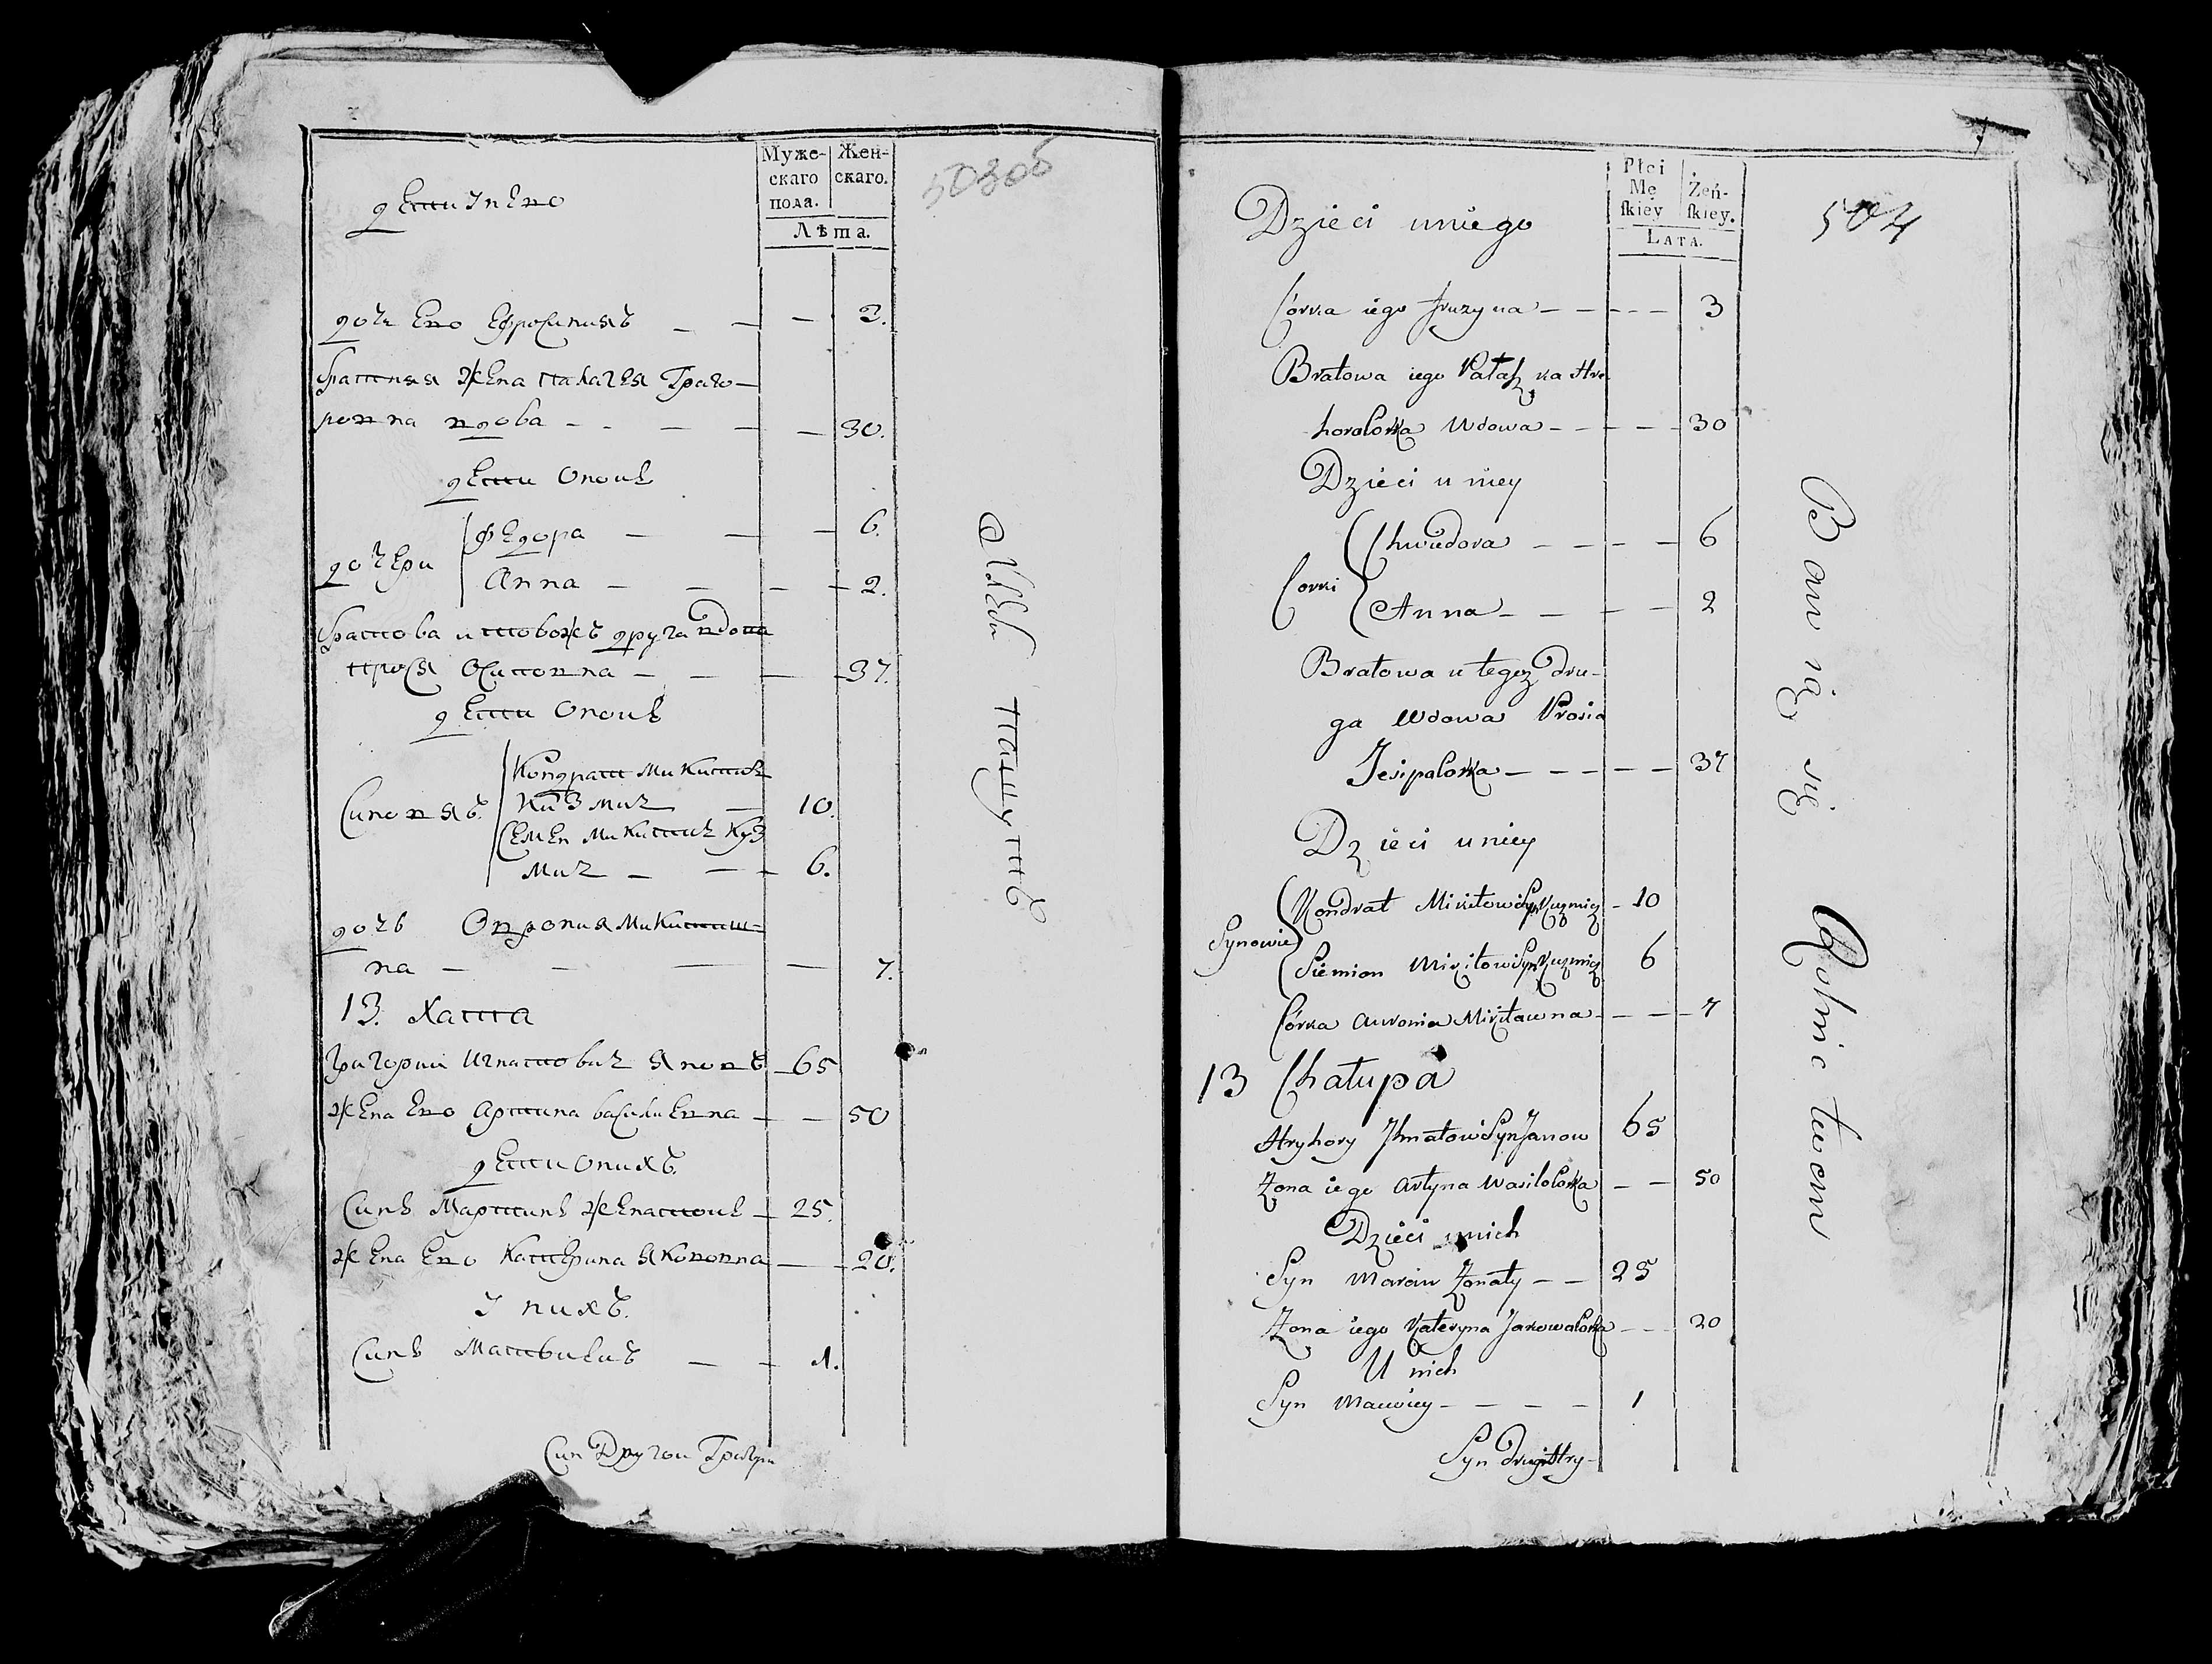 Муже-
скаго
пола.
Жен-
скаго.
Лѣта.
503об
дети у него
дочь его Ефросинияъ — — — 3.
братняя жена палагея Григо—
ровна вдова — — — — 30.
дети оной
дочери
Федора — — — 6.
Анна — — — 2.
братова и тогожъ друга вдова
прося Осиповна — — — 37.
дети оной
Синовяъ.
Кондрат Микитич
Кузмич — 10.
Семен Микитич Куз
мич — — 6.
дочь Овдония Микитиш-
на — — — 7.
13. Хата
Григории Игнатович Яновъ — 65
жена его Артина василиевна — — 50
дети онихъ.
Синъ Мартинъ женатои — 25.
жена его Катерина Якововна — — 20.
У нихъ.
Синъ Матвииъ — — 1.
Син Другои Григори
пашутъ
Płci
Mę
skiey
Żeń-
skiey.
LATA.
504
Dzieci uniego
Córka iego Fruzyna — — — — 3
Bratowa iego Pałaszka Hre
horolowa Wdowa — — — — 30
Dzieci u niey
Corki
Chwiedora — — — — 6
Anna — — — — 2
Bratowa u tegoz Dru-
ga Wdowa Prosia
Jesipalowa — — — — — 37
Dzieci u niey
Synowie
Kondrat Mikitow Syn Kuzmicz — 10
Siemion Mikitow Syn Kuzmicz 6
Córka Auronia Mikitawna — — — 7
13 Chałupa
Hryhory Ihnatow Syn Janow 65
Żona iego Artyna Wasilolowa — — 50
Dzieci u nich
Syn Marcin Żonaty — — 25
Żona iego Kateryna Jakowalowa — — 20
U nich
Syn Maciwiey — — — — 1
Syn drugi Hry-
Bawią się Rolnictwem